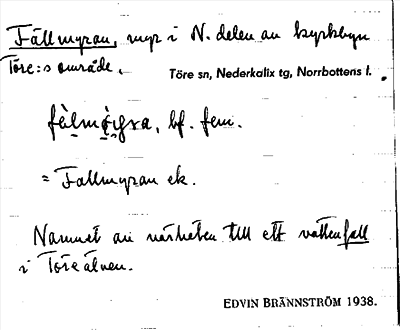 Fällmyran, myr i N. delen av kyrkbyn
Töre:s område.
Töre sn, Nederkalix tg, Norrbottens l.
bf. fem.
= Fallmyran ek.
Namnet av närheten till ett vattenfall
i Töreälven.
EDVIN BRÄNNSTRÖM 1938.